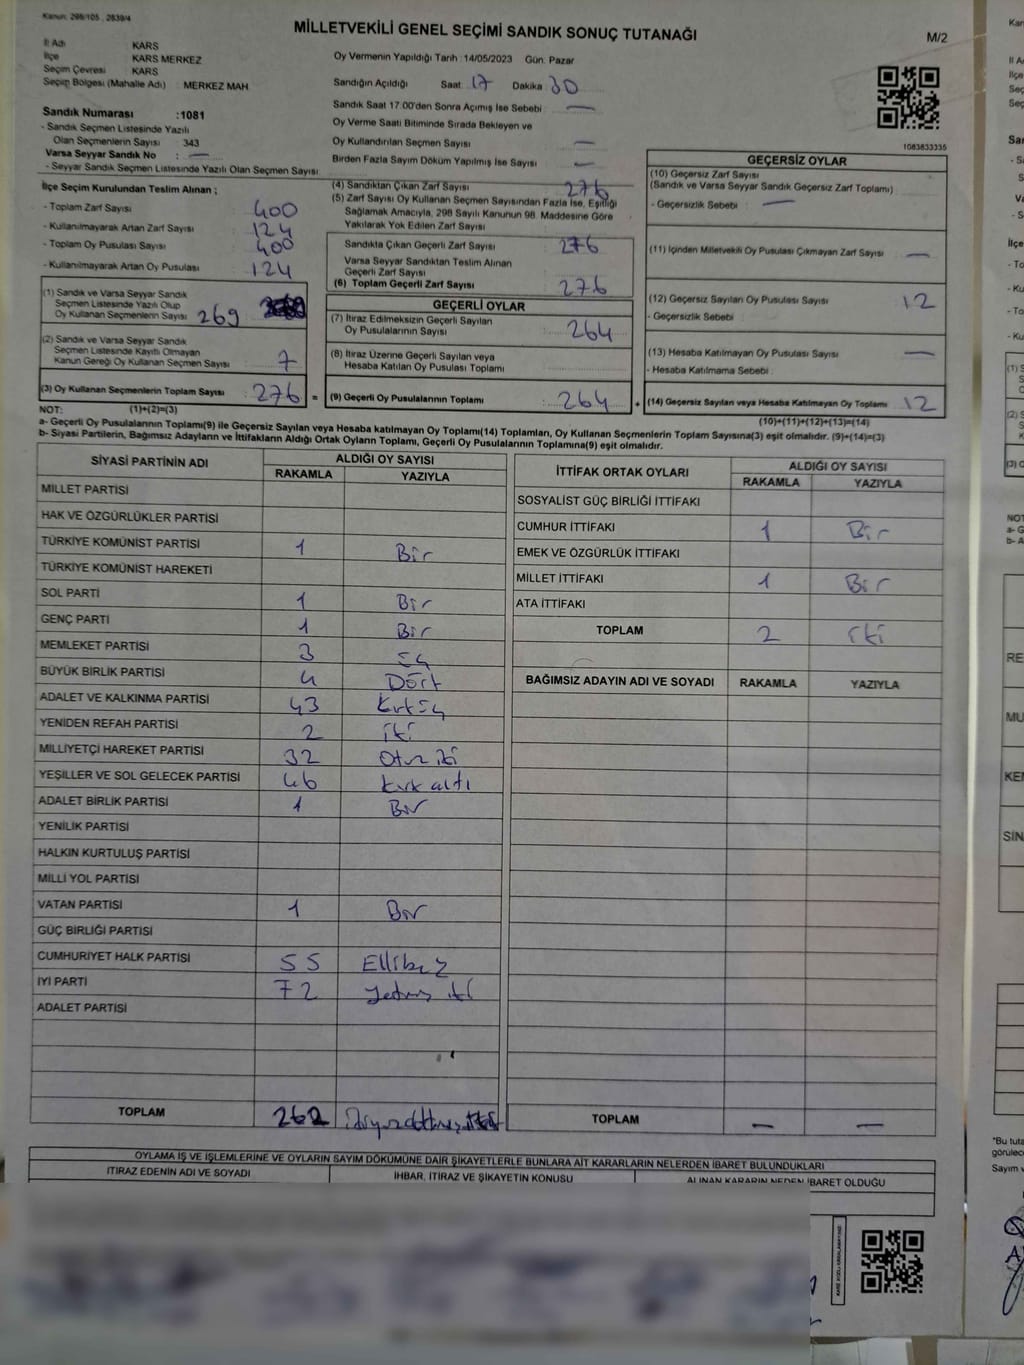 Kanun: 298/105 , 2839/4
MİLLETVEKİLİ GENEL SEÇİMİ SANDIK SONUÇ TUTANAĞI
M/2
İl Adı KARS
İlçe KARS MERKEZ
Seçim Çevresi KARS
Seçim Bölgesi (Mahalle Adı) MERKEZ MAH
Oy Vermenin Yapıldığı Tarih :14/05/2023 Gün: Pazar
Sandığın Açıldığı Saat: 17 Dakika 30
Sandık Saat 17.00'den Sonra Açımış İse Sebebi : —
Oy Verme Saati Bitiminde Sırada Bekleyen ve
Oy Kullandırılan Seçmen Sayısı —
Birden Fazla Sayım Döküm Yapılmış İse Sayısı —
1083833335
Sandık Numarası :1081
- Sandık Seçmen Listesinde Yazılı
Olan Seçmenlerin Sayısı 343
Varsa Seyyar Sandık No : —
- Seyyar Sandık Seçmen Listesinde Yazılı Olan Seçmen Sayısı:
İlçe Seçim Kurulundan Teslim Alınan ;
- Toplam Zarf Sayısı 400
- Kullanılmayarak Artan Zarf Sayısı 124
- Toplam Oy Pusulası Sayısı 400
- Kullanılmayarak Artan Oy Pusulası 124
(1) Sandık ve Varsa Seyyar Sandık
Seçmen Listesinde Yazılı Olup
Oy Kullanan Seçmenlerin Sayısı 269
(2) Sandık ve Varsa Seyyar Sandık
Seçmen Listesinde Kayıtlı Olmayan
Kanun Gereği Oy Kullanan Seçmen Sayısı 7
(3) Oy Kullanan Seçmenlerin Toplam Sayısı 276 =
(4) Sandıktan Çıkan Zarf Sayısı 276
(5) Zarf Sayısı Oy Kullanan Seçmen Sayısından Fazla İse, Eşitliği
Sağlamak Amacıyla, 298 Sayılı Kanunun 98. Maddesine Göre
Yakılarak Yok Edilen Zarf Sayısı
Sandıkta Çıkan Geçerli Zarf Sayısı 276
Varsa Seyyar Sandıktan Teslim Alınan
Geçerli Zarf Sayısı
(6) Toplam Geçerli Zarf Sayısı 276
GEÇERLİ OYLAR
(7) İtiraz Edilmeksizin Geçerli Sayılan
Oy Pusulalarının Sayısı 264
(8) İtiraz Üzerine Geçerli Sayılan veya
Hesaba Katılan Oy Pusulası Toplamı
(9) Geçerli Oy Pusulalarının Toplamı 264 +
GEÇERSİZ OYLAR
(10) Geçersiz Zarf Sayısı
(Sandık ve Varsa Seyyar Sandık Geçersiz Zarf Toplamı)
- Geçersizlik Sebebi : —
(11) İçinden Milletvekili Oy Pusulası Çıkmayan Zarf Sayısı —
(12) Geçersiz Sayılan Oy Pusulası Sayısı 12
- Geçersizlik Sebebi :
(13) Hesaba Katılmayan Oy Pusulası Sayısı —
- Hesaba Katılmama Sebebi :
(14) Geçersiz Sayılan veya Hesaba Katılmayan Oy Toplamı 12
NOT: (1)+(2)=(3) (10)+(11)+(12)+(13)=(14)
a- Geçerli Oy Pusulalarının Toplamı(9) ile Geçersiz Sayılan veya Hesaba katılmayan Oy Toplamı(14) Toplamları, Oy Kullanan Seçmenlerin Toplam Sayısına(3) eşit olmalıdır. (9)+(14)=(3)
b- Siyasi Partilerin, Bağımsız Adayların ve İttifakların Aldığı Ortak Oyların Toplamı, Geçerli Oy Pusulalarının Toplamına(9) eşit olmalıdır.
SİYASİ PARTİNİN ADI ALDIĞI OY SAYISI
RAKAMLA YAZIYLA
MİLLET PARTİSİ
HAK VE ÖZGÜRLÜKLER PARTİSİ
TÜRKİYE KOMÜNİST PARTİSİ 1 Bir
TÜRKİYE KOMÜNİST HAREKETİ
SOL PARTİ 1 Bir
GENÇ PARTİ 1 Bir
MEMLEKET PARTİSİ 3 üç
BÜYÜK BİRLİK PARTİSİ 4 Dört
ADALET VE KALKINMA PARTİSİ 43 Kırküç
YENİDEN REFAH PARTİSİ 2 iki
MİLLİYETÇİ HAREKET PARTİSİ 32 Otuz iki
YEŞİLLER VE SOL GELECEK PARTİSİ 46 kırk altı
ADALET BİRLİK PARTİSİ 1 Bir
YENİLİK PARTİSİ
HALKIN KURTULUŞ PARTİSİ
MİLLİ YOL PARTİSİ
VATAN PARTİSİ 1 Bir
GÜÇ BİRLİĞİ PARTİSİ
CUMHURİYET HALK PARTİSİ 55 Ellibeş
İYİ PARTİ 72 Yetmiş iki
ADALET PARTİSİ
TOPLAM 262
İTTİFAK ORTAK OYLARI ALDIĞI OY SAYISI
RAKAMLA YAZIYLA
SOSYALİST GÜÇ BİRLİĞİ İTTİFAKI
CUMHUR İTTİFAKI 1 Bir
EMEK VE ÖZGÜRLÜK İTTİFAKI
MİLLET İTTİFAKI 1 Bir
ATA İTTİFAKI
TOPLAM 2 iki
BAĞIMSIZ ADAYIN ADI VE SOYADI RAKAMLA YAZIYLA
TOPLAM — —
OYLAMA İŞ VE İŞLEMLERİNE VE OYLARIN SAYIM DÖKÜMÜNE DAİR ŞİKAYETLERLE BUNLARA AİT KARARLARIN NELERDEN İBARET BULUNDUKLARI
İTİRAZ EDENİN ADI VE SOYADI İHBAR, İTİRAZ VE ŞİKAYETİN KONUSU ALINAN KARARIN NEDEN İBARET OLDUĞU